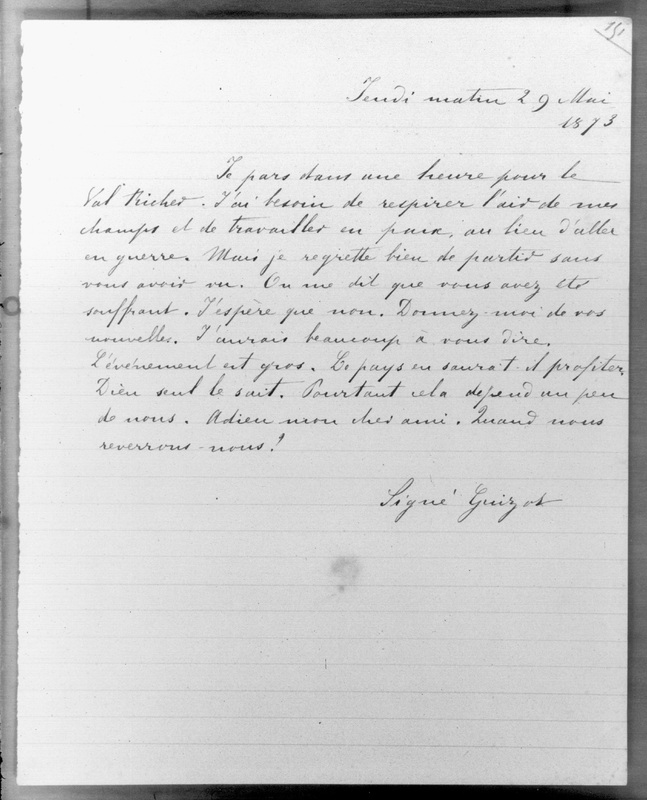 151
Jeudi matin 29 Mai
1873
Je pars dans une heure pour le
Val Richer. J'ai besoin de respirer l'air de mes
champs et de travailler en paix, au lieu d'aller
en guerre. Mais je regrette bien de partir sans
vous avoir vu. On me dit que vous avez été
souffrant. J'espère que non. Donnez-moi de vos
nouvelles. J'aurais beaucoup à vous dire.
L'événement est gros. Le pays en saura-t-il profiter.
Dieu seul le sait. Pourtant cela dépend un peu
de nous. Adieu mon cher ami. Quand nous
reverrons-nous?
Signé Guizot